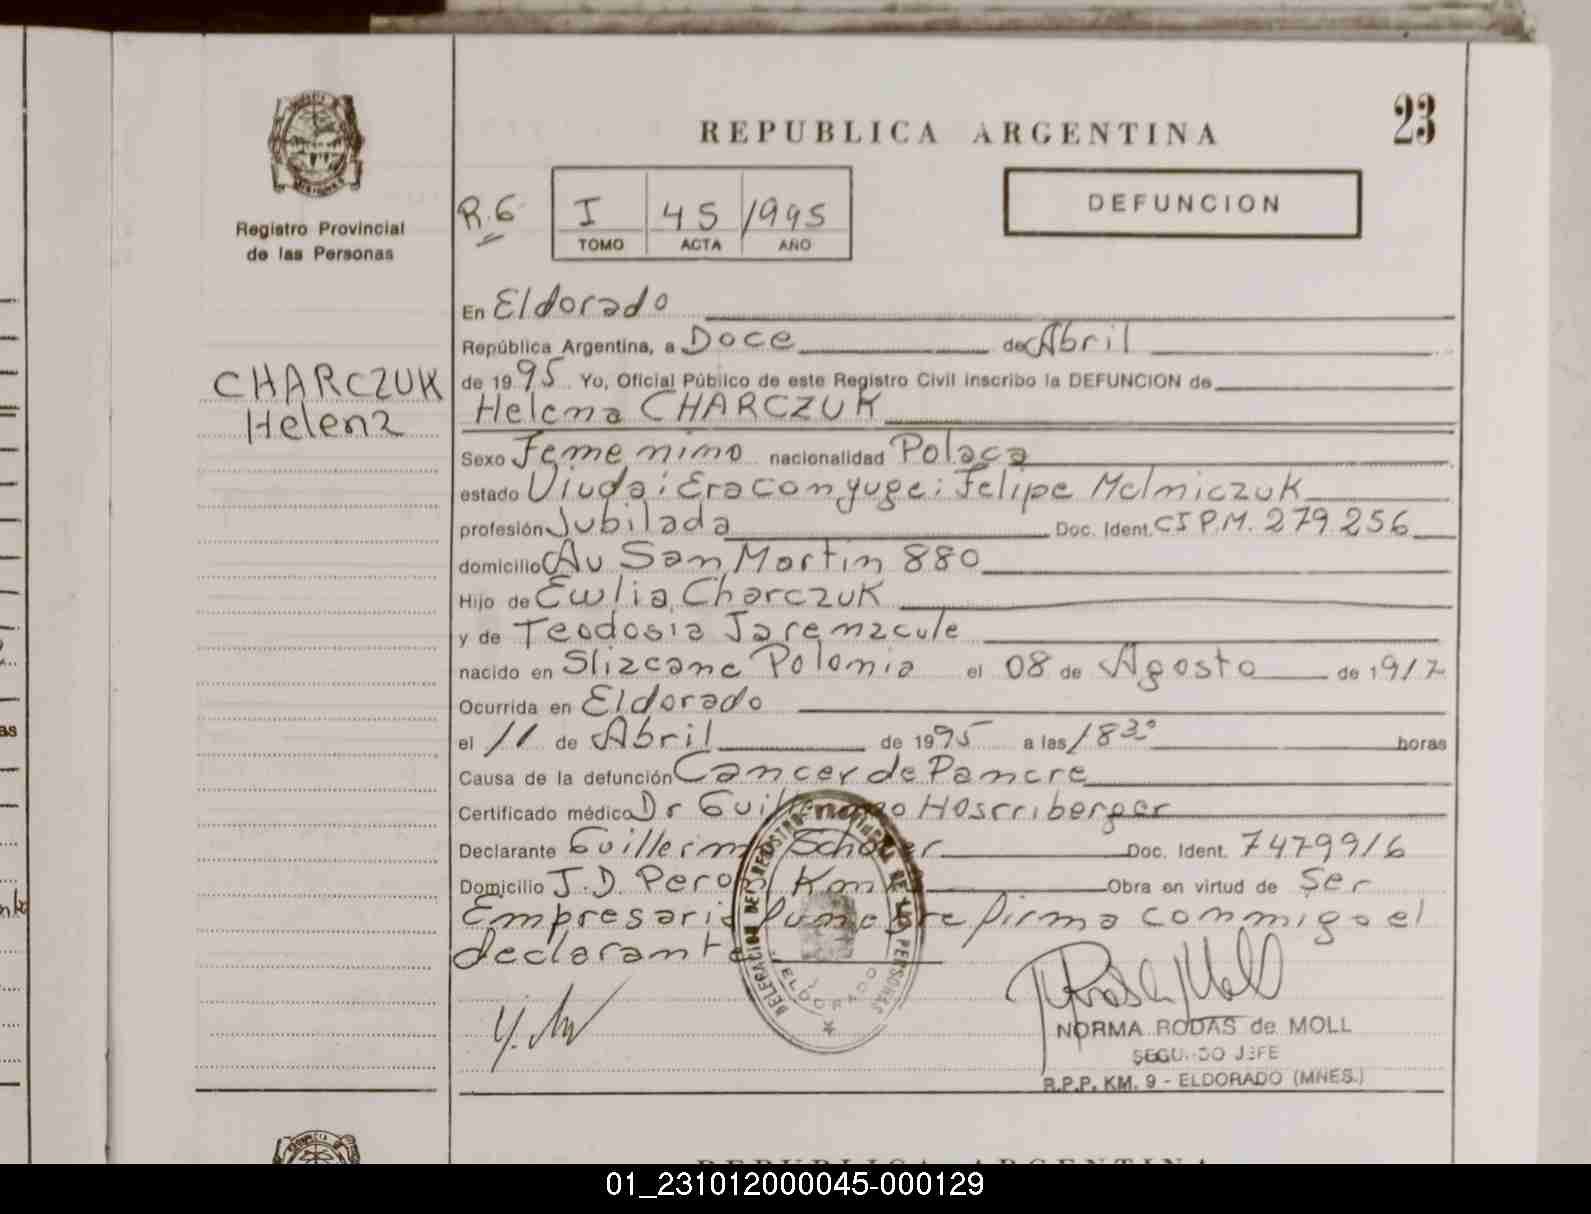 23
REPUBLICA ARGENTINA
DEFUNCION
R.6
I 45 1995
TOMO ACTA AÑO
Registro Provincial
de las Personas
CHARCZUK
Helena
En Eldorado
República Argentina, a Doce de Abril
de 1995 Yo, Oficial Público de este Registro Civil inscribo la DEFUNCION de
Helena CHARCZUK
Sexo Femenino nacionalidad Polaca
estado Viuda; Era conyuge; Felipe Melniczuk
profesión Jubilada Doc. Ident. CI P.M. 279.256
domicilio Av San Martin 880
Hijo de Ewlia Charczuk
y de Teodosia Jaremacule
nacido en Slizcane Polonia el 08 de Agosto de 1917
Ocurrida en Eldorado
el 11 de Abril de 1995 a las 18 30 horas
Causa de la defunción Cancer de Pancre
Certificado médico Dr Guillermo Hosrriberger
Declarante Guillermo Schoner Doc. Ident. 7479916
Domicilio J.D. Peron Km Obra en virtud de Ser
Empresario funebre firma conmigo el
declarante
DELEGACION DEL REGISTRO PROVINCIAL DE LAS PERSONAS
ELDORADO
NORMA RODAS de MOLL
SEGUNDO JEFE
R.P.P. KM. 9 - ELDORADO (MNES.)
REPUBLICA ARGENTINA
01_231012000045-000129